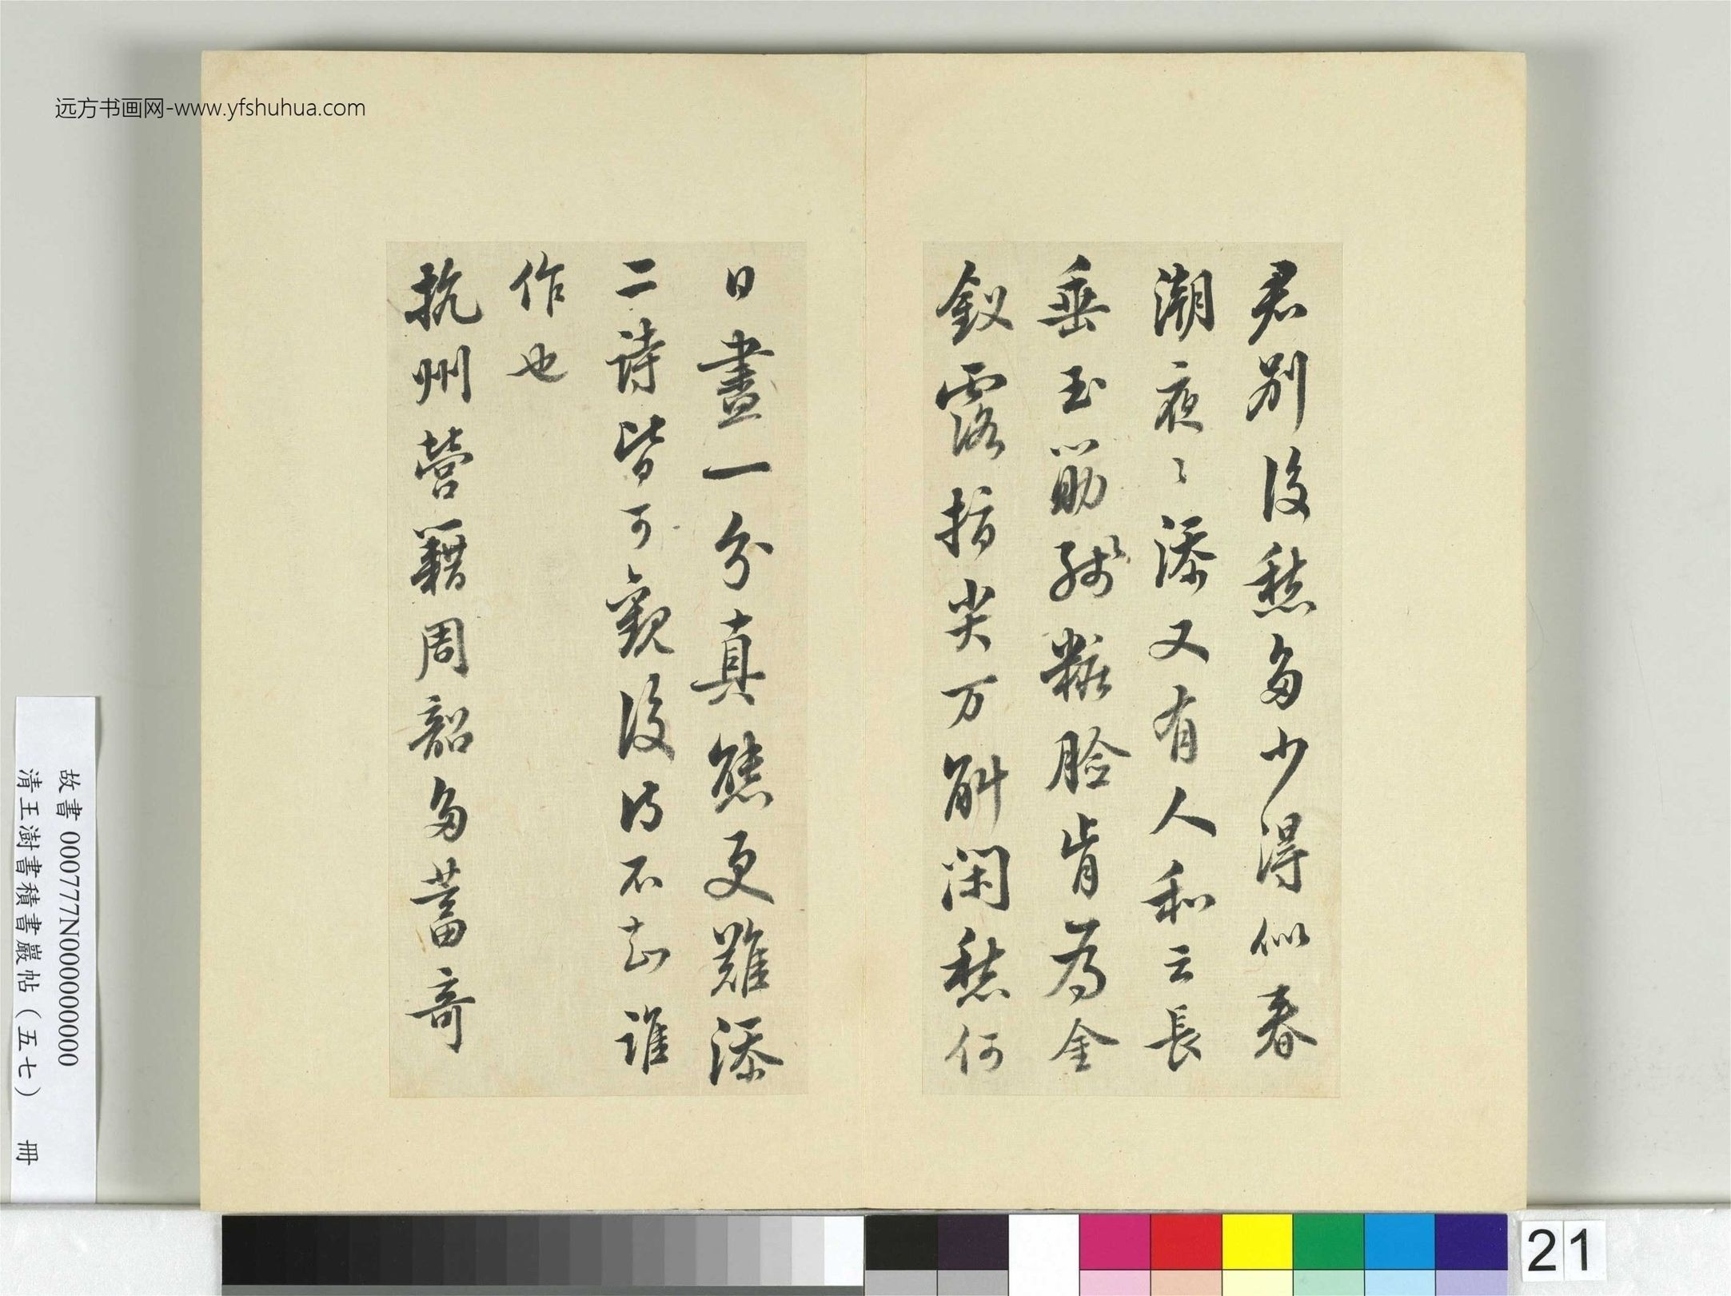 远方书画网-www.yfshuhua.com
君別後愁多少得似春
潮夜々添又有人和云長
垂玉筋殘粧臉肯為金
釵露指尖万斛閑愁何
日盡一分真態更難添
二詩皆可觀後詩不知誰
作也
杭州營籍周韶多蓄奇
故書 000777N000000000
清王澍書積書巖帖（五七） 冊
21